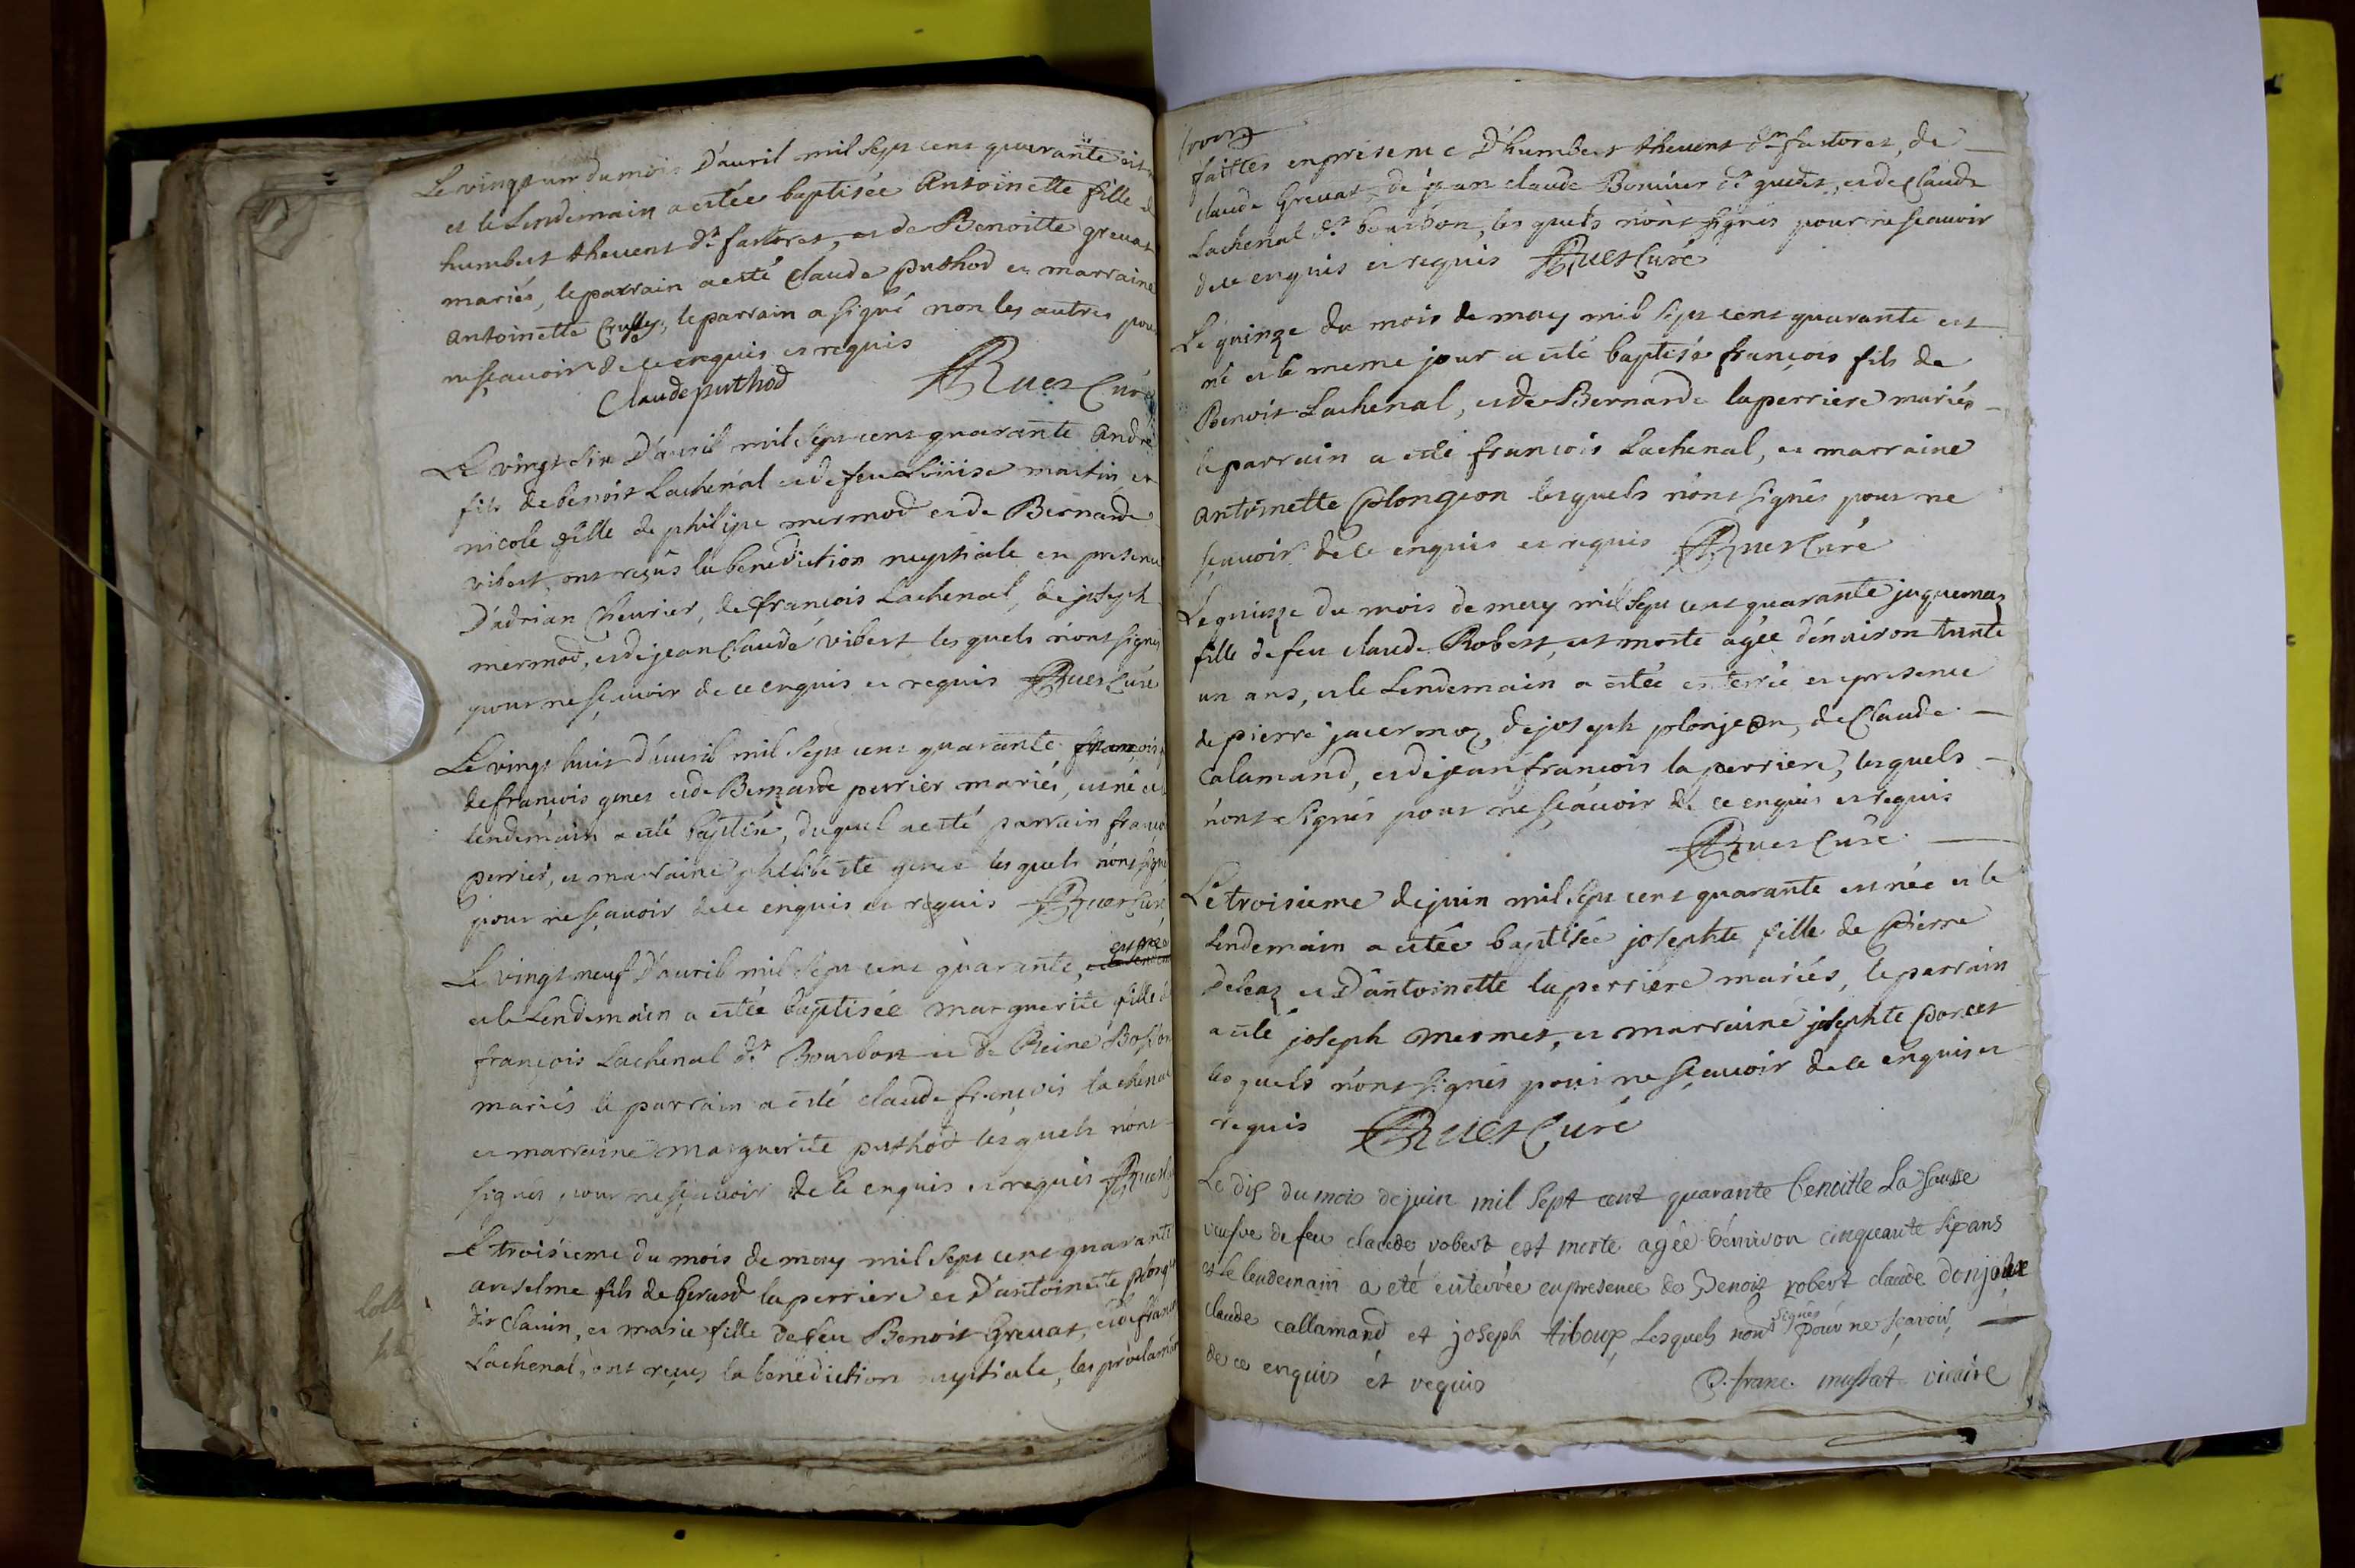 Le vingt un du mois D'auril mil sept cent quarante est
et le Lendemain a estée baptisée Antoinette fille de
humbert theuent dt fastoret, et de Benoitte greuat
mariés, le parrain a esté Claude puthod et marraine
antoinette, le parrain a signé non les autres pour
ne sçauoir de ce enquis et requis
Claude puthod Ruet Curé
Le vingt six D'auril mil sept cent quarante André
fils de benoit Lachenal et de feu Loüise martin et
nicole fille de philipe mermod et de Bernarde
vibert ont reçus la benediction nuptiale en presence
D'adrian Cheurier, de françois Lachenal, de joseph
mermod, et de jean Claude vibert les quels n'ont signés
pour ne sçauoir de ce enquis et requis Ruet Curé
Le vingt huit d'auril mil sept cent quarante françois
de françois genet et de Bernarde perrier mariés, est né et le
lendemain a esté baptisé, duquel a esté parrain françois
perrier, et marraine philiberte genet les quels n'ont signé
pour ne sçauoir de ce enquis et requis Ruet Curé
est née
Le vingt neuf D'auril mil sept cent quarante, et le Lendem
et le Lendemain a estée baptisée marguerite fille de
françois Lachenal dt Bourbon et de Reine Bosson
mariés le parrain a esté claude françois lachenal
et marraine marguerite puthod les quels n'ont
signés pour ne sçauoir de ce enquis et requis Ruet
Le troisieme du mois de may mil sept cent quarante
anselme fils de Gerard laperriere et D'antoinette plongeon
dit Clauin, et marie fille de feu Benoit Greuat, et de fran
Lachenal, ont reçus la benediction nuptiale, les proclamat
faittes en presence D'humbert theuent dt fastoret, de
claude Greuat, de jean claude Bouuier dt guedet, et de Claude
Lachenal dt bourbon, les quels n'ont signés pour ne sçauoir
de ce enquis et requis Ruet Curé
Le quinze du mois de may mil sept cent quarante est
né et le meme jour a esté baptisé françois fils de
Benoit Lachenal, et de Bernarde laperriere mariés
le parrain a esté françois Lachenal, et marraine
antoinette plongeon lesquels n'ont signés pour ne
sçauoir de ce enquis et requis Ruet Curé
Le quinze du mois de may mil sept cent quarante jaquemaz
fille de feu claude Robert, est morte agée d'enuiron trente
un ans, et le Lendemain a estée enterrée en presence
de pierre jacermoz, de joseph plonjeon, de Claude
Calamand, et de jean françois la perriere, lesquels
n'ont signés pour ne sçauoir de ce enquis et requis
Ruet Curé
Le troisieme de juin mil sept cent quarante est née et le
Lendemain a estée baptisée josephte fille de Pierre
Deleaz et D'antoinette laperriere mariés, le parrain
a esté joseph mermet, et marraine josephte porret
les quels n'ont signés pour ne sçauoir de ce enquis et
requis Ruet Curé
Le dix du mois de juin mil sept cent quarante benoitte La sausse
veufve de feu claude robert est morte agée d'environ cinquante six ans
et le lendemain a eté enterrée en presence de Benoit robert claude donjoux
signés
claude callamand et joseph tiboux Lesquels nont pour ne sçavoir
de ce enquis et requis P. franc. mussat vicaire